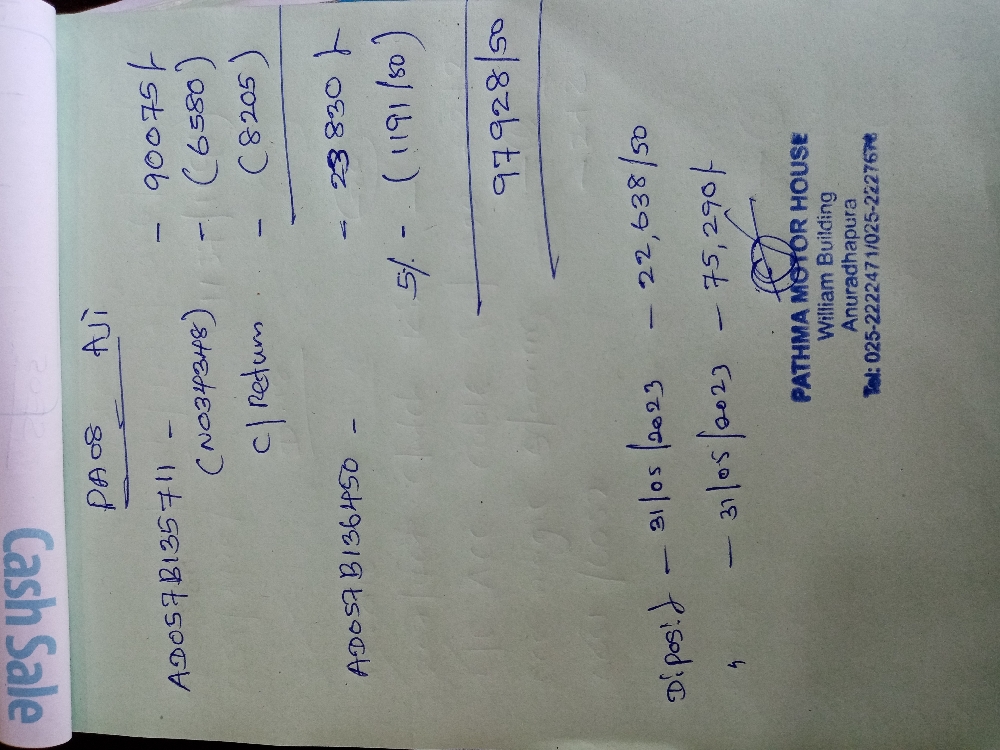 Cash Sale
PA08 AJi
AD057B135711 - - 90075/-
(N034348) - (6580)
C/ Return - (8205)
AD057B136450 - - 23830/-
5% - (1191/50)
97928/50
Diposit - 31/05/2023 - 22,638/50
" - 31/05/2023 - 75,290/-
PATHMA MOTOR HOUSE
William Building
Anuradhapura
Tel: 025-2222471/025-2227676